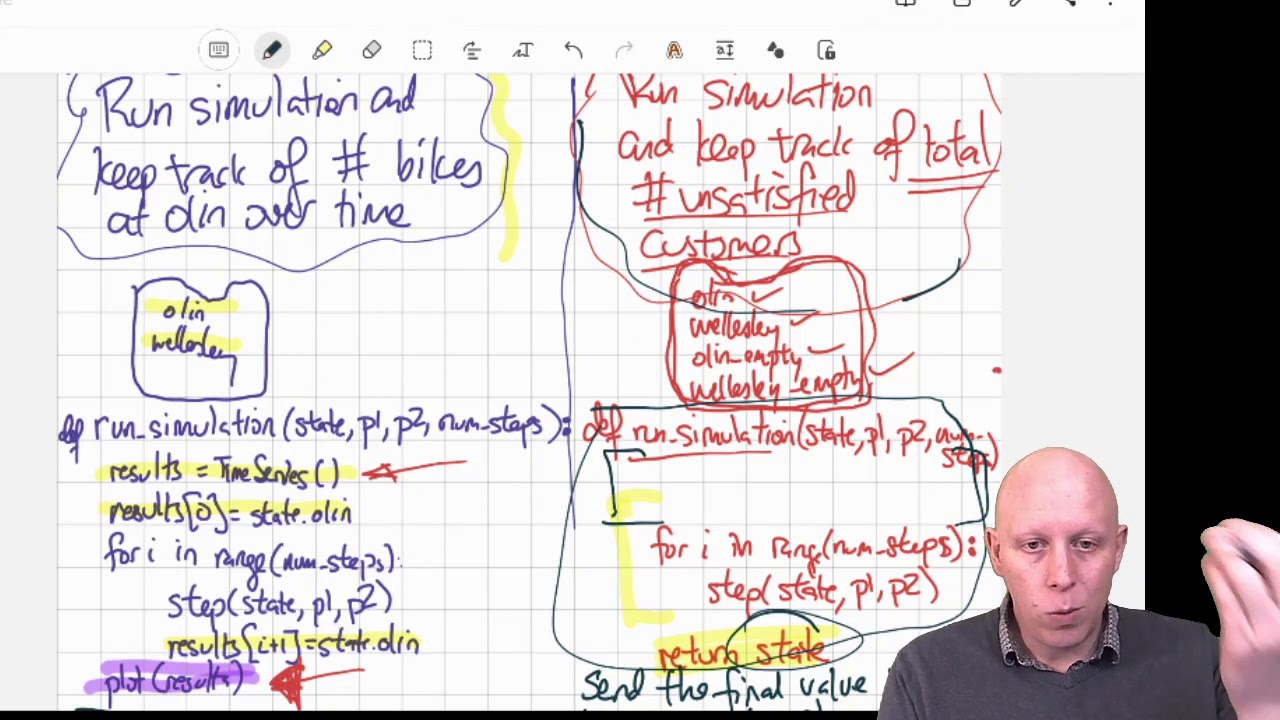 Run simulation and
keep track of # bikes
at olin over time
olin
wellesley
def run_simulation(state, p1, p2, num_steps):
results = TimeSeries()
results[0] = state.olin
for i in range(num_steps):
step(state, p1, p2)
results[i+1] = state.olin
plot(results)
Run simulation
and keep track of total
# unsatisfied
customers
olin ✓
wellesley ✓
olin_empty ✓
wellesley_empty ✓
def run_simulation(state, p1, p2, num_
steps)
for i in range(num_steps):
step(state, p1, p2)
return state
Send the final value